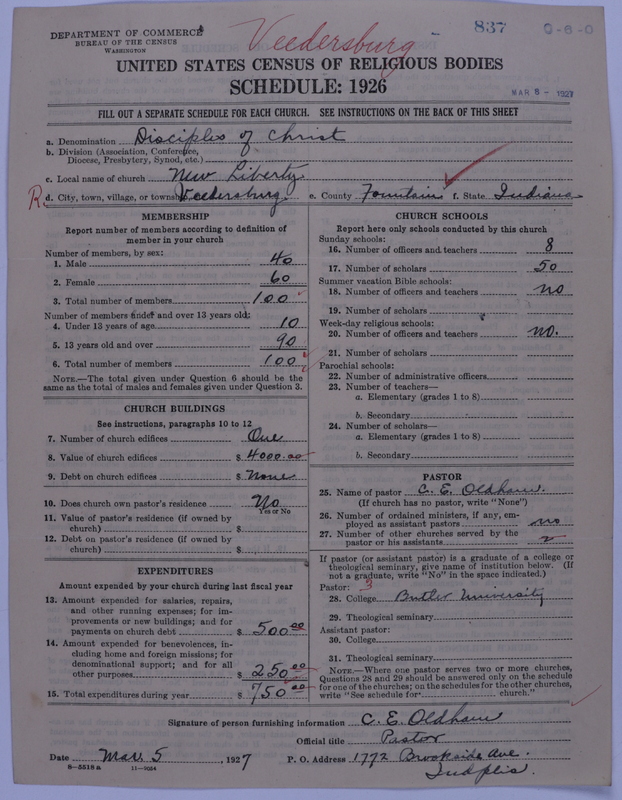 DEPARTMENT OF COMMERCE
BUREAU OF THE CENSUS
WASHINGTON
Veedersburg
837
0-6-0
UNITED STATES CENSUS OF RELIGIOUS BODIES
SCHEDULE: 1926
MAR 8 - 1927
FILL OUT A SEPARATE SCHEDULE FOR EACH CHURCH. SEE INSTRUCTIONS ON THE BACK OF THIS SHEET
a. Denomination Disciples of Christ
b. Division (Association, Conference, Diocese, Presbytery, Synod, etc.)
c. Local name of church New Liberty
R. d. City, town, village, or township Veedersburg e. County Fountain f. State Indiana
MEMBERSHIP
Report number of members according to definition of
member in your church
Number of members, by sex:
1. Male 40
2. Female 60
3. Total number of members 100
Number of members under and over 13 years old:
4. Under 13 years of age 10
5. 13 years old and over 90
6. Total number of members 100
NOTE.—The total given under Question 6 should be the
same as the total of males and females given under Question 3.
CHURCH BUILDINGS
See instructions, paragraphs 10 to 12
7. Number of church edifices One
8. Value of church edifices $ 4000.00
9. Debt on church edifices $ None
10. Does church own pastor's residence No
Yes or No
11. Value of pastor's residence (if owned by
church) $
12. Debt on pastor's residence (if owned by
church) $
EXPENDITURES
Amount expended by your church during last fiscal year
13. Amount expended for salaries, repairs,
and other running expenses; for im-
provements or new buildings; and for
payments on church debt $ 500 00
14. Amount expended for benevolences, in-
cluding home and foreign missions; for
denominational support; and for all
other purposes $ 250 00
15. Total expenditures during year $ 750 00
CHURCH SCHOOLS
Report here only schools conducted by this church
Sunday schools:
16. Number of officers and teachers 8
17. Number of scholars 50
Summer vacation Bible schools:
18. Number of officers and teachers no
19. Number of scholars
Week-day religious schools:
20. Number of officers and teachers no.
21. Number of scholars
Parochial schools:
22. Number of administrative officers
23. Number of teachers—
a. Elementary (grades 1 to 8)
b. Secondary
24. Number of scholars—
a. Elementary (grades 1 to 8)
b. Secondary
PASTOR
25. Name of pastor C. E. Oldham
(If church has no pastor, write "None")
26. Number of ordained ministers, if any, em-
ployed as assistant pastors no
27. Number of other churches served by the
pastor or his assistants 2
If pastor (or assistant pastor) is a graduate of a college or
theological seminary, give name of institution below. (If
not a graduate, write "No" in the space indicated.)
Pastor: 3
28. College Butler University
29. Theological seminary
Assistant pastor:
30. College
31. Theological seminary
NOTE.—Where one pastor serves two or more churches,
Questions 28 and 29 should be answered only on the schedule
for one of the churches; on the schedules for the other churches,
write "See schedule for church."
Signature of person furnishing information C. E. Oldham
Official title Pastor
Date Mar. 5, 1927 P. O. Address 1772 Brookside Ave.
Indplis.
8-5518 a 11-9054